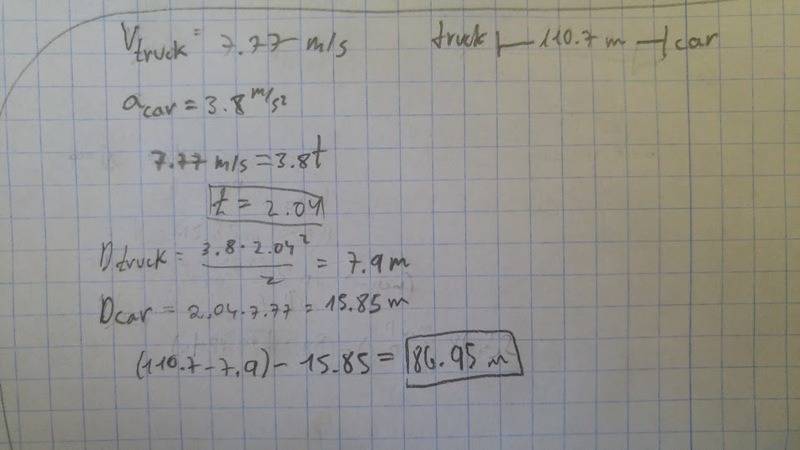 Vtruck = 7.77 m/s truck |— 110.7 m —| car
acar = 3.8 m/s²
7.77 m/s = 3.8t
t = 2.04
Dtruck = 3.8 · 2.04² / 2 = 7.9 m
Dcar = 2.04 · 7.77 = 15.85 m
(110.7 - 7.9) - 15.85 = 86.95 m